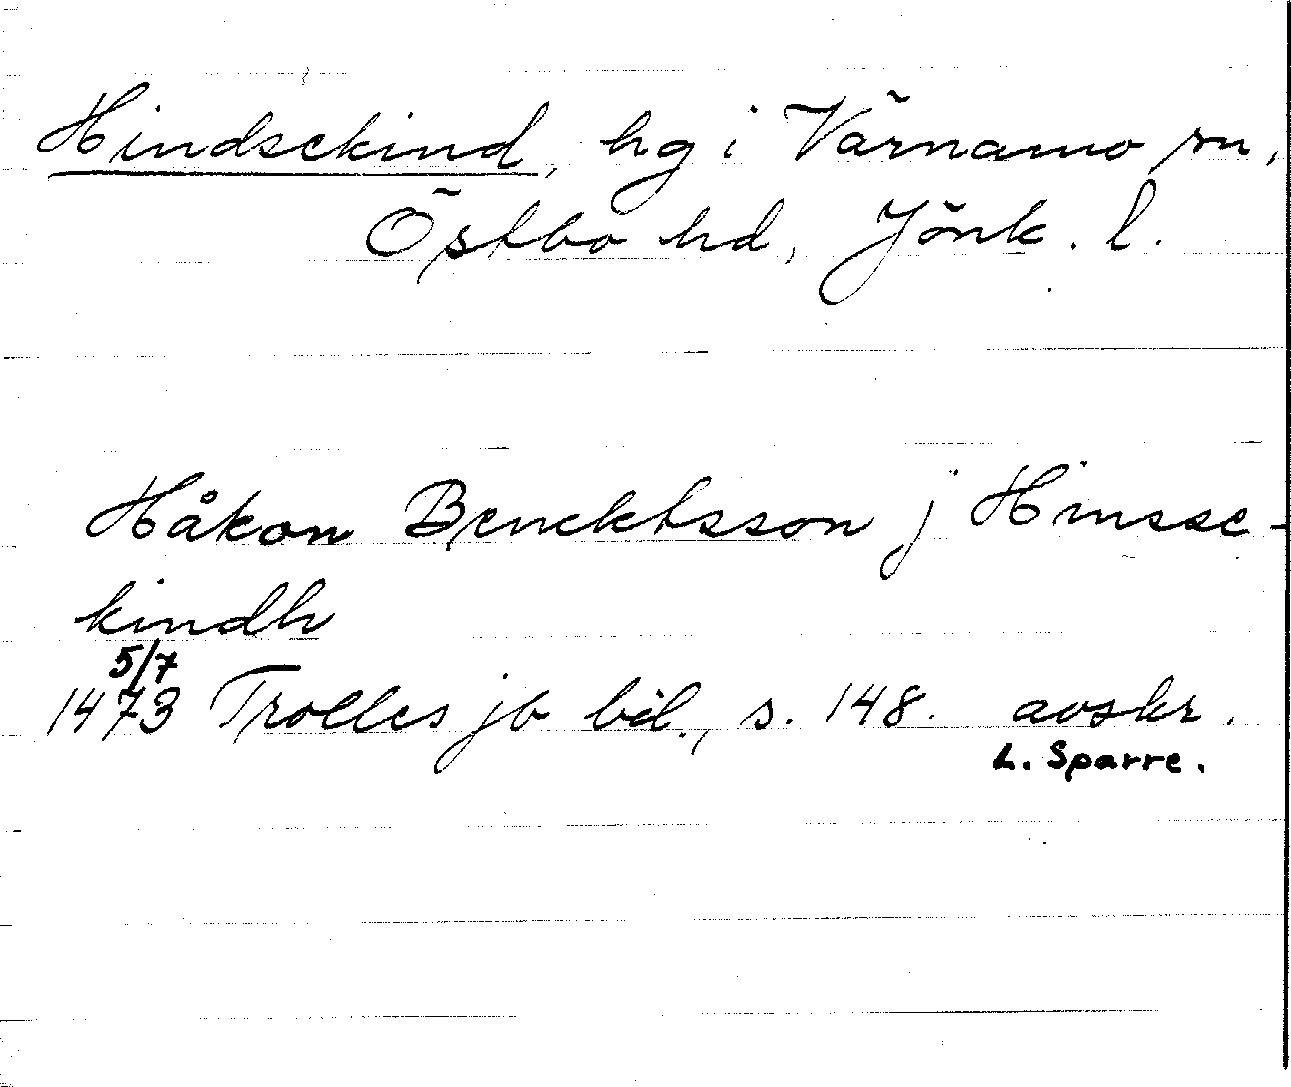 Hindsekind, hg i Värnamo sn,
Östbo hd, Jönk. l.
Håkon Bencktsson j Hinsse-
kindh
5/7
1473 Trolles jb bil., s. 148. avskr.
L. Sparre.